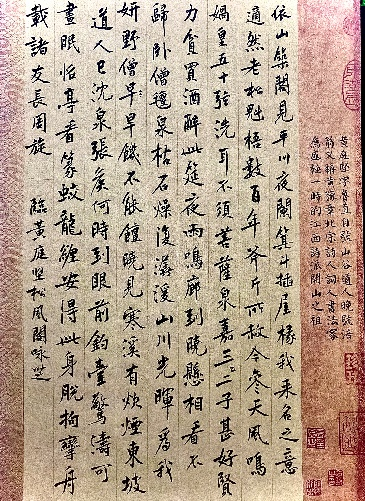 黃庭堅字魯直自號山谷道人晚號涪
翁又稱黃豫章北宋詩人詞人書法家
為盛極一時的江西詩派開山之祖
依山築閣見平川夜闌箕斗插屋椽我來名之意
適然老松魁梧數百年斧斤所赦今參天風鳴
媧皇五十弦洗耳不須菩薩泉嘉三二子甚好賢
力貧買酒醉此筵夜雨鳴廊到曉懸相看不
歸臥僧氈泉枯石燥復潺湲山川光暉為我
妍野僧早旱饑不能饘曉見寒溪有炊煙東坡
道人已沈泉張侯何時到眼前釣臺驚濤可
晝眠怡亭看篆蛟龍纏安得此身脫拘攣舟
載諸友長周旋 臨黃庭堅松風閣